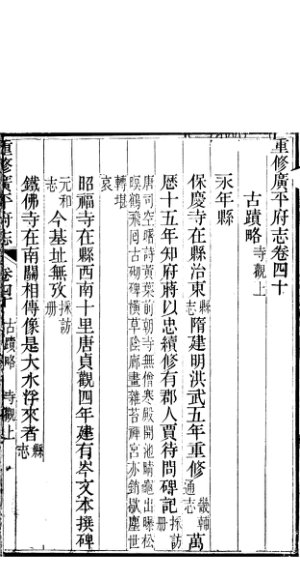 重修廣平府志卷四十
古蹟略 寺觀上
永年縣
保慶寺在縣治東縣志隋建明洪武五年重修畿輔通志萬
厯十五年知府蔣以忠續修有郡人賈待問碑記採訪冊
唐司空曙詩黃葉前朝寺無僧寒殿開池晴龜出曝松
暝鶴飛回古砌碑橫草陰廊畫雜苔禪宮亦銷歇塵世
轉堪哀
昭福寺在縣西南十里唐貞觀四年建有岑文本撰碑
元和志今基址無攷採訪冊
鐵佛寺在南關相傳像是大水浮來者縣志
重修廣平府志 卷四十 古蹟略 寺觀上